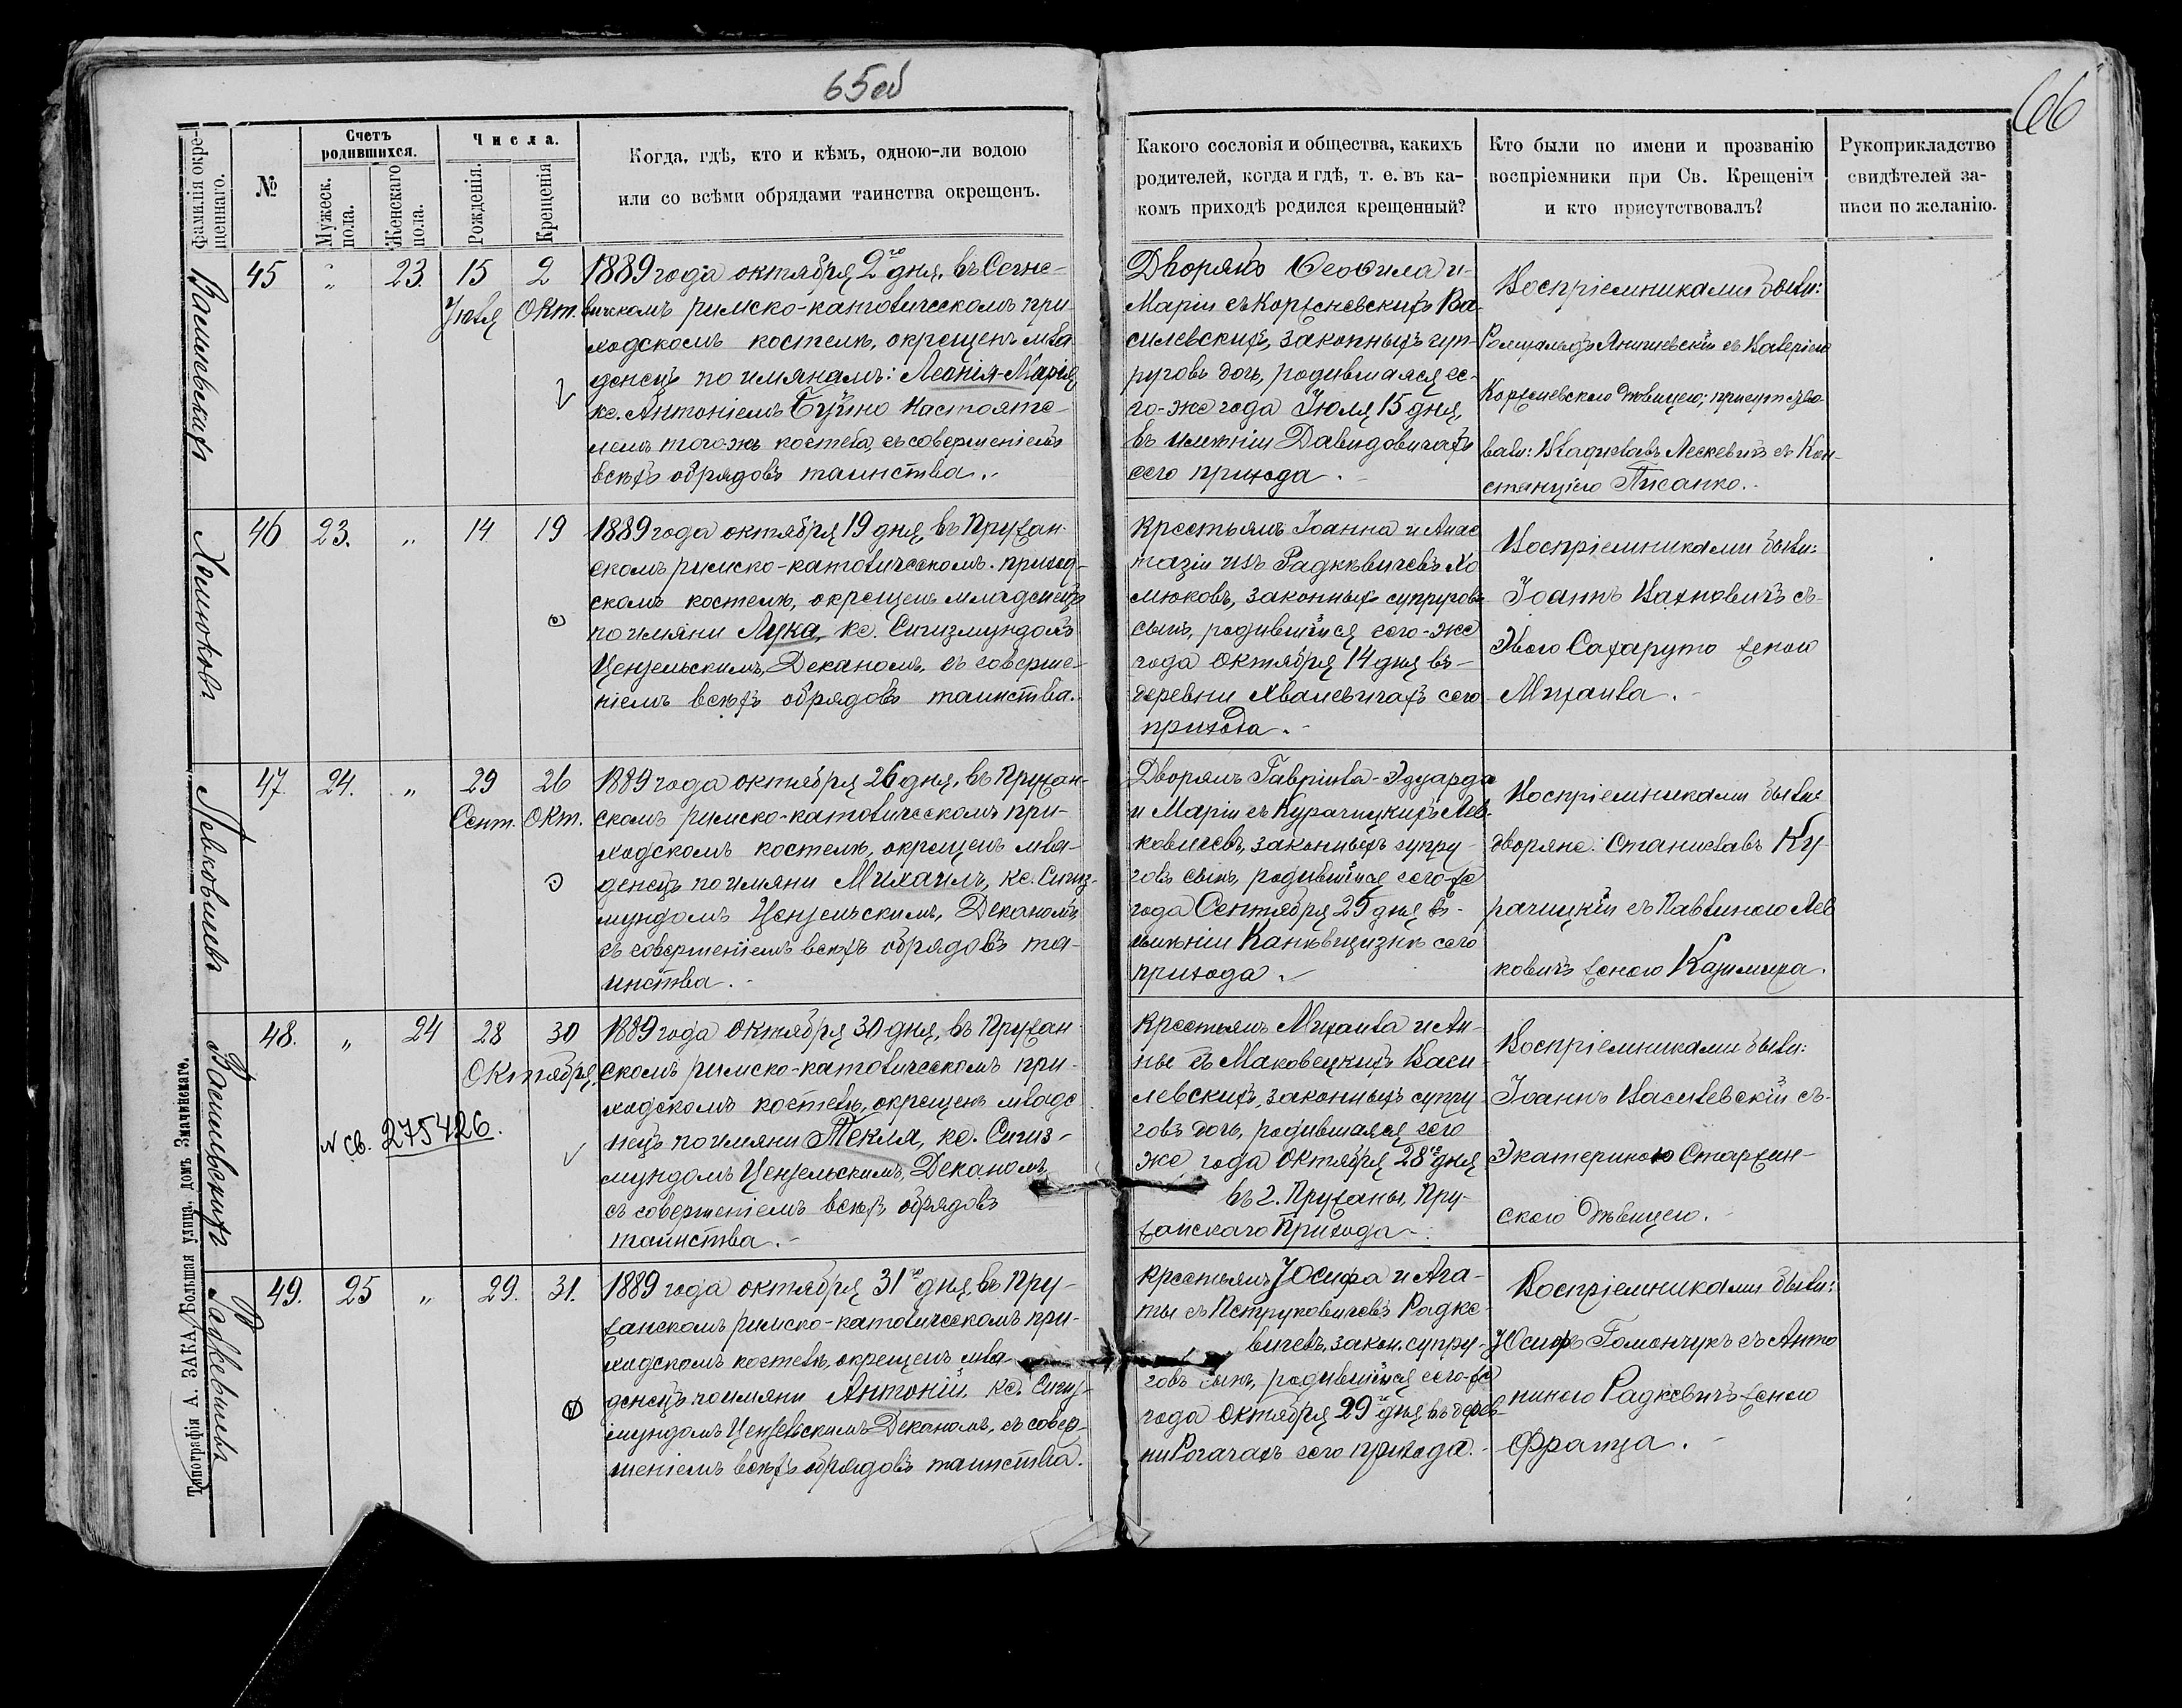 65об
66
Фамилія окре-
щеннаго.
№
Счетъ
родившихся.
Мужеск.
пола.
Женскаго
пола.
Числа.
Рожденія.
Крещенія
Когда, гдѣ, кто и кѣмъ, одною-ли водою
или со всѣми обрядами таинства окрещенъ.
Какого сословія и общества, какихъ
родителей, когда и гдѣ, т. е. въ ка-
комъ приходѣ родился крещенный?
Кто были по имени и прозванію
воспріемники при Св. Крещеніи
и кто присутствовалъ?
Рукоприкладство
свидѣтелей за-
писи по желанію.
Василевскихъ
45 " 23. 15 2
Іюля Окт.
1889 года октября 2го дня, въ Сегне-
вичскомъ римско-католическомъ при-
ходскомъ костелѣ, окрещенъ мла
денецъ по имянамъ: Леонія-Марія,
кс. Антоніемъ Буйно Настояте-
лемъ того-жъ костела, съ совершеніемъ
всѣхъ обрядовъ таинства.
Дворянъ Ѳеофила и-
Маріи съ Корженевскихъ Ва-
силевскихъ, законныхъ суп-
руговъ дочь, родившаяся се-
го-же года Іюля 15 дня,
въ имѣніи Давидовичахъ
сего прихода.
Воспріемниками были:
Ромуальдъ Янишевскій съ Валеріею
Корженевскою дѣвицею; присутство
вали: Владиславъ Лескевичъ съ Кон-
станціею Писанко.
Хомюковъ
46 23. " 14 19
1889 года октября 19 дня, въ Пружан-
скомъ римско-католическомъ приход-
скомъ костелѣ, окрещенъ младенецъ
по имяни Лука, кс. Сигизмундомъ
Цензельскимъ, Деканомъ, съ соверше-
ніемъ всѣхъ обрядовъ таинства.
Крестьянъ Іоанна и Анас
тазіи изъ Радкѣвичевъ Хо
мюковъ, законныхъ супруговъ
сынъ, родившійся сего-же
года Октября 14 дня въ-
деревни Хвалевичахъ сего
прихода.
Воспріемниками были:
Іоаннъ Вахновичъ съ-
Эвою Сахаруто женою
Михаила.
Левковичевъ
47. 24. " 29 26
Сент. Окт.
1889 года октября 26 дня, въ Пружан-
скомъ римско-католическомъ при-
ходскомъ костелѣ, окрещенъ мла-
денецъ по имяни Михаилъ, кс. Сигиз-
мундомъ Цензельскимъ, Деканомъ
съ совершеніемъ всѣхъ обрядовъ та-
инства.
Дворянъ Гавріила-Эдуарда
и Маріи съ Курачицкихъ Лев-
ковичевъ, законныхъ супру-
говъ сынъ, родившійся сего-же
года Сентября 29 дня въ-
имѣніи Канѣвщизнѣ сего
прихода.
Воспріемниками были
дворяне: Станиславъ Ку-
рачицкій съ Павлиною Лев
ковичъ женою Казимира.
Василевскихъ
48. " 24 28 30
Октября
N св. 275426.
1889 года Октября 30 дня, въ Пружан-
скомъ римско-католическомъ при-
ходскомъ костелѣ, окрещенъ младе
нецъ по имяни Текля, кс. Сигиз-
мундомъ Цензельскимъ, Деканомъ
съ совершеніемъ всѣхъ обрядовъ
таинства.
Крестьянъ Михаила и Ан-
ны съ Маковецкихъ Васи-
левскихъ, законныхъ супру
говъ дочь, родившаяся сего
же года Октября 28го дня
въ г. Пружаны, Пру-
жанскаго Прихода.
Воспріемниками были:
Іоаннъ Василевскій съ-
Екатериною Старжин-
скою дѣвицею.
Радкевичевъ
49. 25 " 29. 31.
1889 года октября 31го дня, въ Пру-
жанскомъ римско-католическомъ при-
ходскомъ костелѣ, окрещенъ мла-
денецъ по имяни Антоній, кс. Сигиз-
мундомъ Цензельскимъ Деканомъ, съ совер-
шеніемъ всѣхъ обрядовъ таинства.
Крестьянъ Іосифа и Ага-
ты съ Петруковичевъ Радке-
вичевъ, закон. супру-
говъ сынъ, родившійся сего-же
года Октября 29го дня въ дерев-
ни Рогачахъ сего прихода.
Воспріемниками были:
Іосифъ Гомончукъ съ Анто
ниною Радкевичъ женою
Франца.
Типографія А. ЗАКА, Большая улица, домъ Значинскаго.